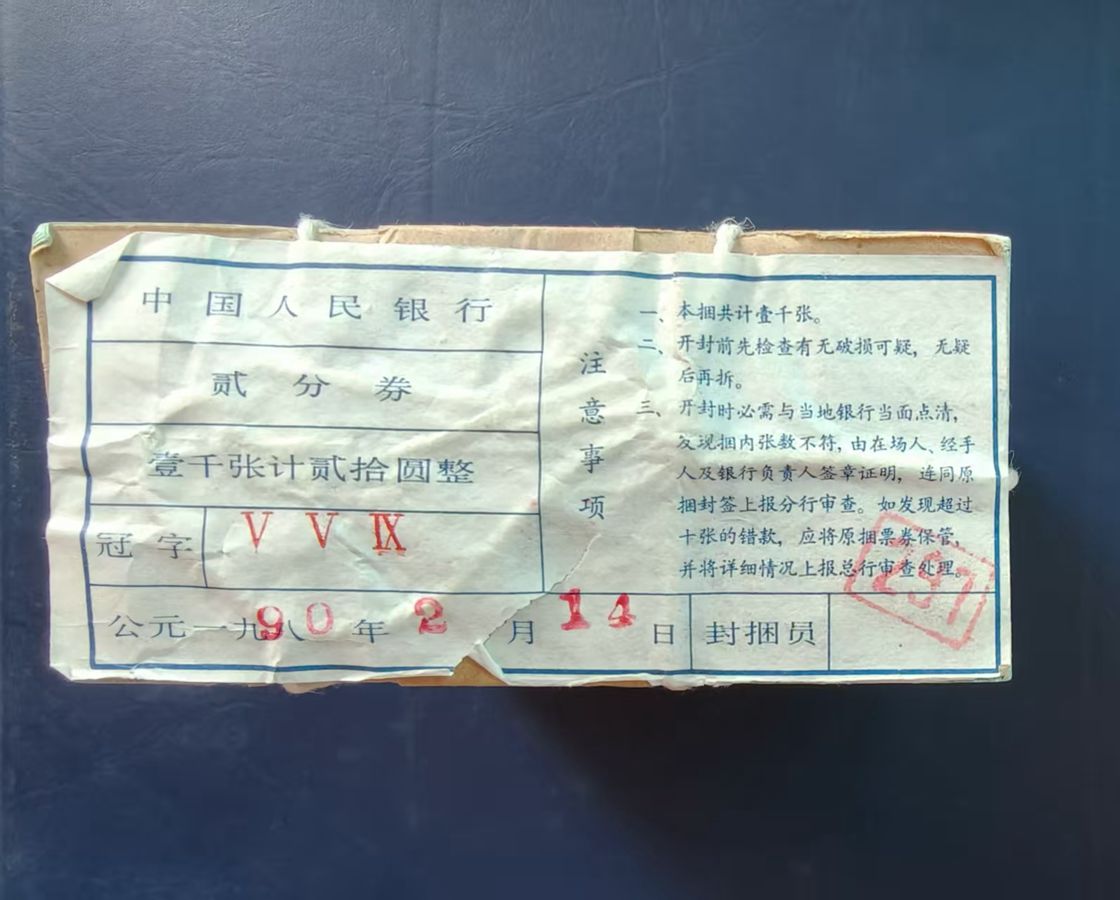 中国人民银行
贰分券
壹千张计贰拾圆整
冠字 V V IX
公元一九八90年2月14日 封捆员
注意事项
一、本捆共计壹千张。
二、开封前先检查有无破损可疑，无疑
后再拆。
三、开封时必需与当地银行当面点清，
发现捆内张数不符，由在场人、经手
人及银行负责人签章证明，连同原
捆封签上报分行审查。如发现超过
十张的错款，应将原捆票券保管，
并将详细情况上报总行审查处理。
291